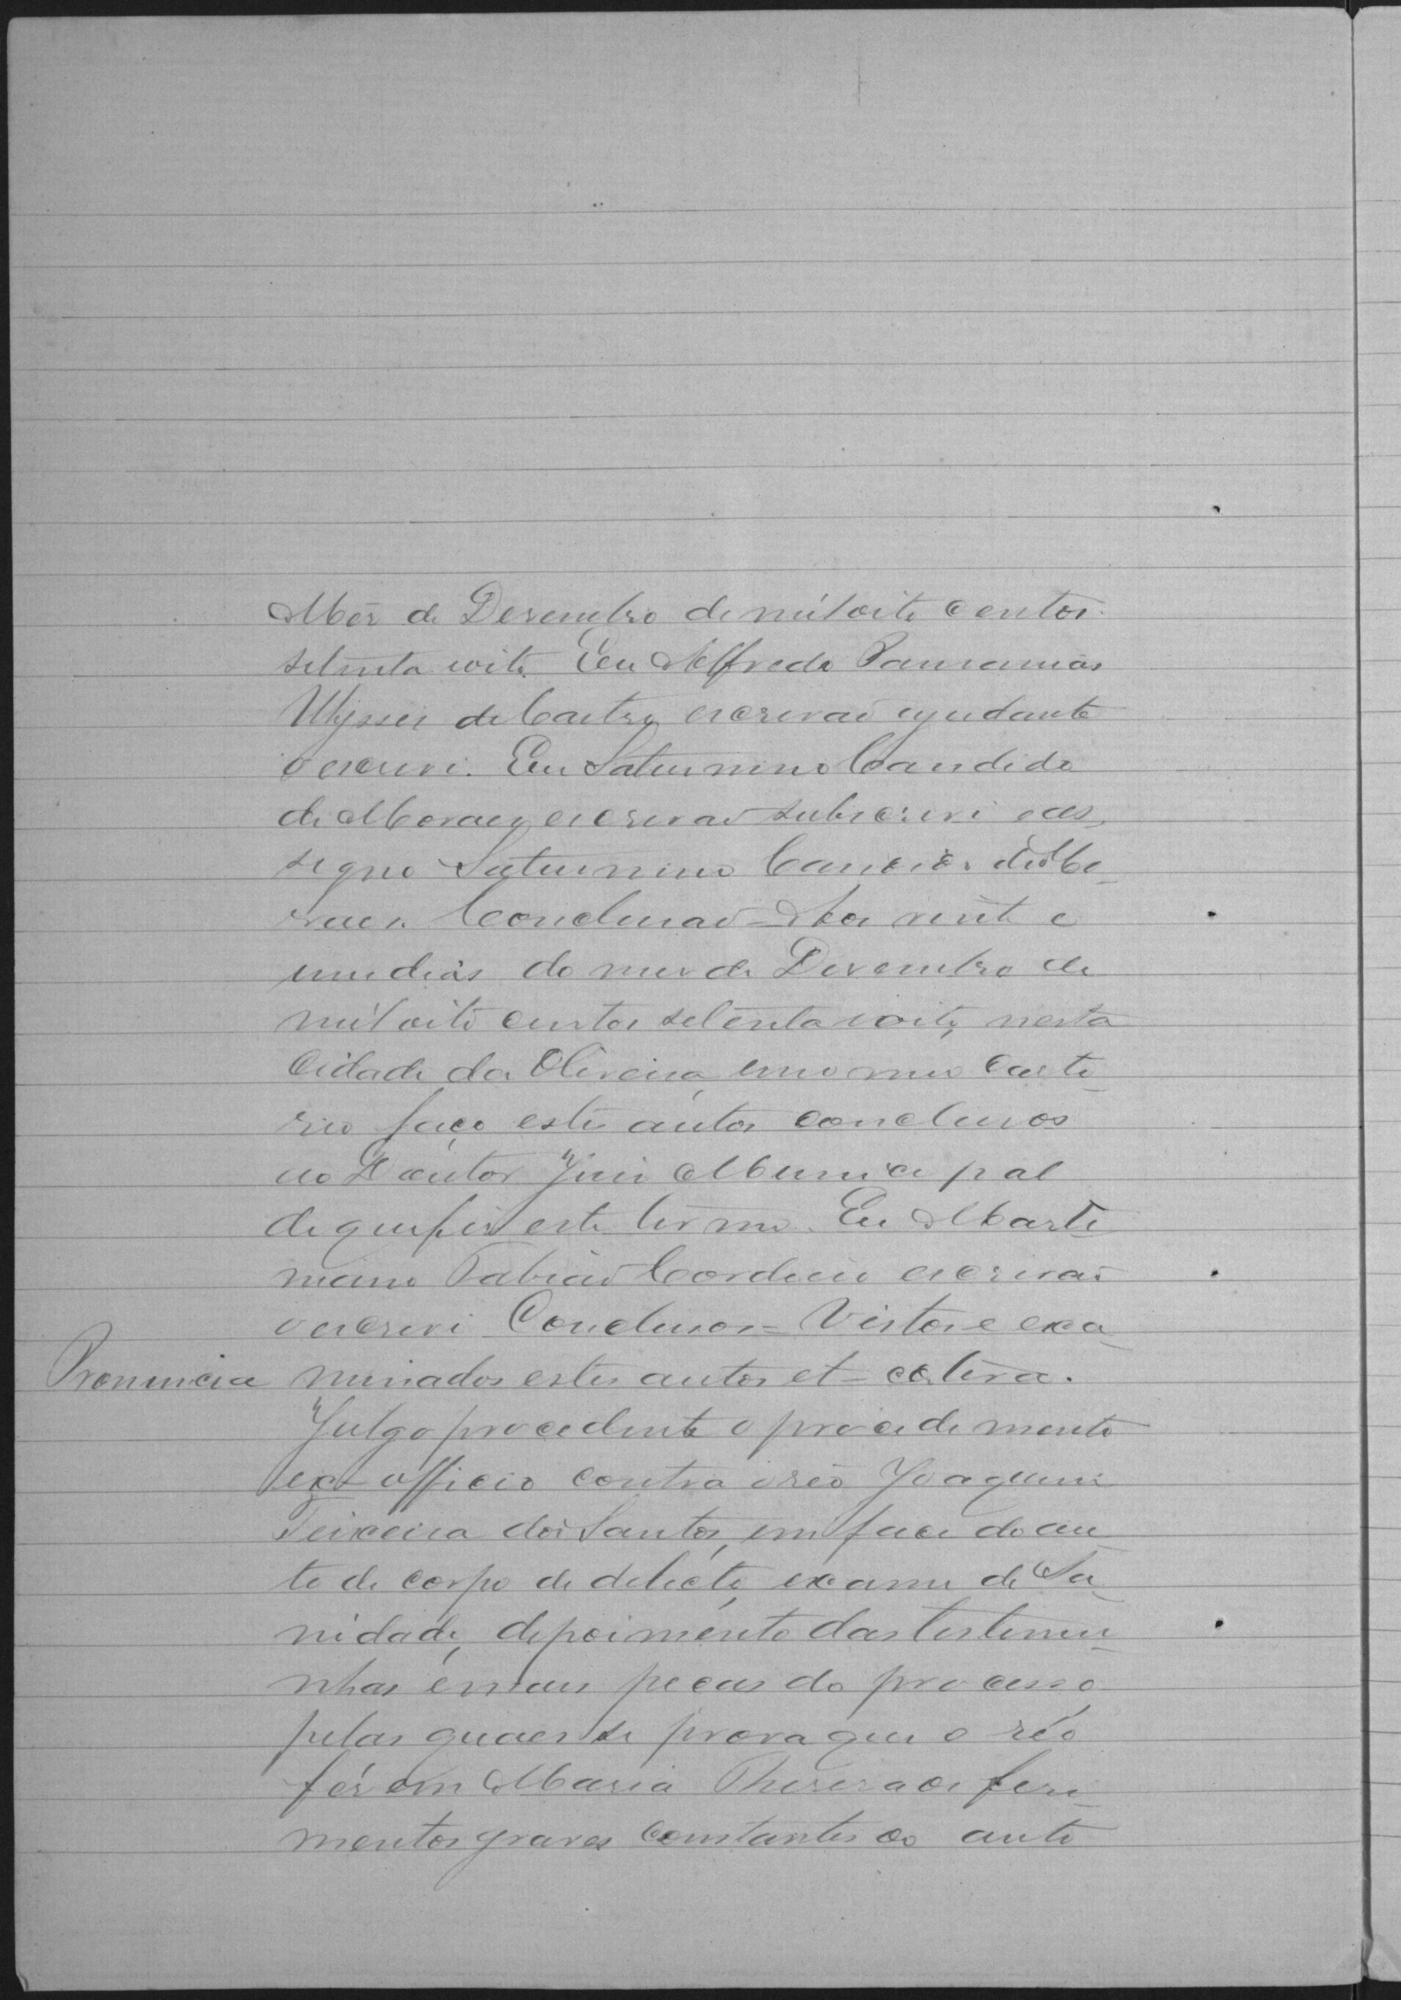 Mez de Dezembro de mil oito centos
setenta e oito. Eu Alfredo
Ulysses de Castro, escrivão ajudante
o escrevi. Eu Saturnino Candido
de Moraes escrivão subscrevi e as,
signo Saturnino Candido de Mo-
raes. Conclusão - Aos vinte e
um dias do mez de Dezembro de
mil oito centos setenta e oito, nesta
Cidade da Oliveira, em o meu carto-
rio faço estes autos conclusos
ao Doutor Juiz Municipal
de que fiz este termo. Eu Marti-
niano Fabião Cordeiro escrivão
o escrevi Conclusos = Vistos e exa-
Pronuncia minados estes autos et - cœtera.
Julgo procedente o procedimento
ex-officio contra o réo Joaquim
Teixeira dos Santos, em face do au
to de corpo de delicto, exame de Sa-
nidade, depoimento das testemu-
nhas e mais peças do processo,
pelas quaes se prova que o réo
fêz em Maria Thereza os feri-
mentos graves constantes do auto